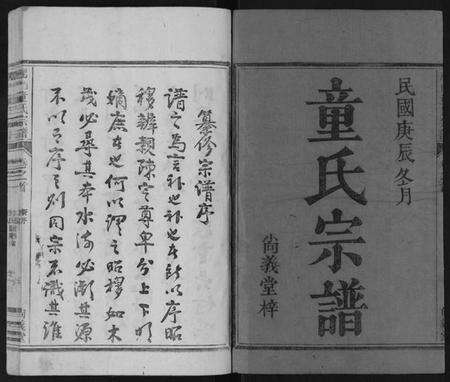 民國庚辰冬月
童氏宗譜
尙義堂梓
纂修宗谱序
谱之為言补也补也者所以序昭
穆辨親疎定尊卑分上下明
嫡庶者也何以谓之昭穆如木
茂必尋其本水
必溯其源
不以之序之则同宗不識其誰